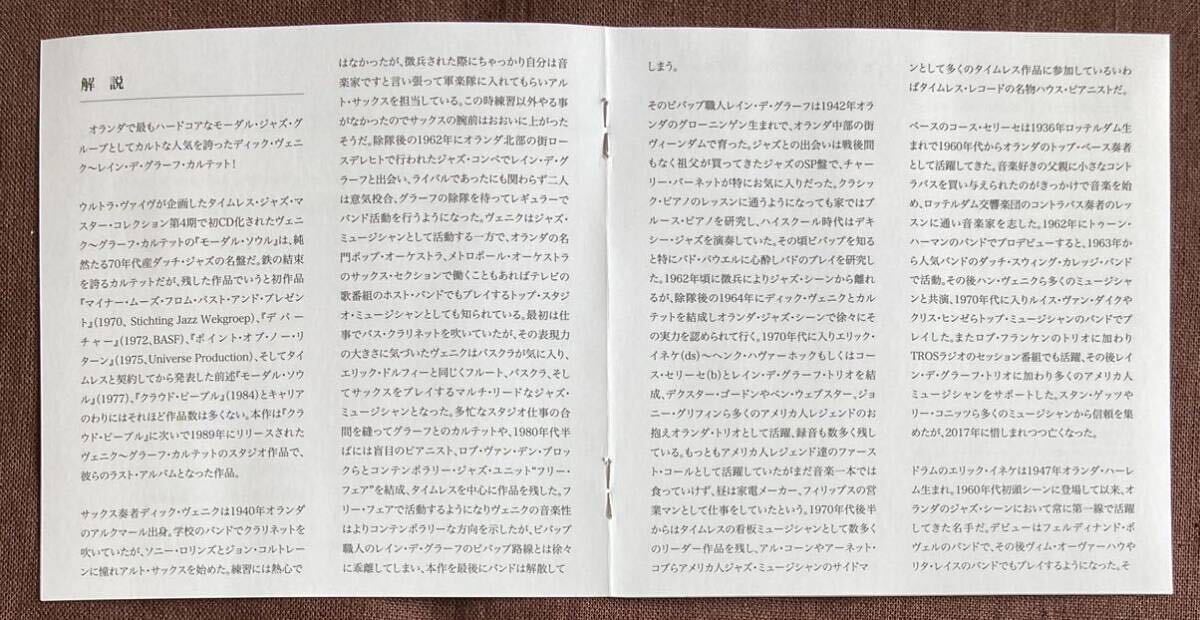 解 説
オランダで最もハードコアなモーダル・ジャズ・グ
ループとしてカルトな人気を誇ったディック・ヴェニ
ク〜レイン・デ・グラーフ・カルテット！
ウルトラ・ヴァイヴが企画したタイムレス・ジャズ・マ
スター・コレクション第4期で初CD化されたヴェニ
ク〜グラーフ・カルテットの『モーダル・ソウル』は、純
然たる70年代産ダッチ・ジャズの名盤だ。鉄の結束
を誇るカルテットだが、残した作品でいうと初作品
『マイナー・ムーズ・フロム・パスト・アンド・プレゼン
ト』(1970, Stichting Jazz Wekgroep)、『デパー
チャー』(1972、BASF)、『ポイント・オブ・ノー・リ
ターン』(1975、Universe Production)、そしてタイ
ムレスと契約してから発表した前述『モーダル・ソウ
ル』(1977)、『クラウド・ピープル』(1984)とキャリア
のわりにはそれほど作品数は多くない。本作は『クラ
ウド・ピープル』に次いで1989年にリリースされた
ヴェニク〜グラーフ・カルテットのスタジオ作品で、
彼らのラスト・アルバムとなった作品。
サックス奏者ディック・ヴェニクは1940年オランダ
のアルクマール出身。学校のバンドでクラリネットを
吹いていたが、ソニー・ロリンズとジョン・コルトレー
ンに憧れアルト・サックスを始めた。練習には熱心で
はなかったが、徴兵された際にちゃっかり自分は音
楽家ですと言い張って軍楽隊に入れてもらいアル
ト・サックスを担当している。この時練習以外やる事
がなかったのでサックスの腕前はおおいに上がった
そうだ。除隊後の1962年にオランダ北部の街ロー
スデレヒトで行われたジャズ・コンペでレイン・デ・グ
ラーフと出会い、ライバルであったにも関わらず二人
は意気投合、グラーフの除隊を待ってレギュラーで
バンド活動を行うようになった。ヴェニクはジャズ・
ミュージシャンとして活動する一方で、オランダの名
門ポップ・オーケストラ、メトロポール・オーケストラ
のサックス・セクションで働くこともあればテレビの
歌番組のホスト・バンドでもプレイするトップ・スタジ
オ・ミュージシャンとしても知られている。最初は仕
事でバス・クラリネットを吹いていたが、その表現力
の大きさに気づいたヴェニクはバスクラが気に入り、
エリック・ドルフィーと同じくフルート、バスクラ、そし
てサックスをプレイするマルチ・リードなジャズ・
ミュージシャンとなった。多忙なスタジオ仕事の合
間を縫ってグラーフとのカルテットや、1980年代半
ばには盲目のピアニスト、ロブ・ヴァン・デン・ブロッ
クらとコンテンポラリー・ジャズ・ユニット"フリー・
フェア"を結成、タイムレスを中心に作品を残した。フ
リー・フェアで活動するようになりヴェニクの音楽性
はよりコンテンポラリーな方向を示したが、ビバップ
職人のレイン・デ・グラーフのビバップ路線とは徐々
に乖離してしまい、本作を最後にバンドは解散して
しまう。
そのビバップ職人レイン・デ・グラーフは1942年オラ
ンダのグローニンゲン生まれで、オランダ中部の街
ヴィーンダムで育った。ジャズとの出会いは戦後間
もなく祖父が買ってきたジャズのSP盤で、チャー
リー・バーネットが特にお気に入りだった。クラシッ
ク・ピアノのレッスンに通うようになっても家ではブ
ルース・ピアノを研究し、ハイスクール時代はデキ
シー・ジャズを演奏していた。その頃ビバップを知る
と特にバド・パウエルに心酔しバドのプレイを研究し
た。1962年頃に徴兵によりジャズ・シーンから離れ
るが、除隊後の1964年にディック・ヴェニクとカル
テットを結成しオランダ・ジャズ・シーンで徐々にそ
の実力を認められて行く。1970年代に入りエリック・
イネケ(ds)〜ヘンク・ハヴァーホックもしくはコー
ス・セリーセ(b)とレイン・デ・グラーフ・トリオを結
成、デクスター・ゴードンやベン・ウェブスター、ジョ
ニー・グリフィンら多くのアメリカ人レジェンドのお
抱えオランダ・トリオとして活躍、録音も数多く残し
ている。もっともアメリカ人レジェンド達のファース
ト・コールとして活躍していたがまだ音楽一本では
食っていけず、昼は家電メーカー、フィリップスの営
業マンとして仕事をしていたという。1970年代後半
からはタイムレスの看板ミュージシャンとして数多く
のリーダー作品を残し、アル・コーンやアーネット・
コブらアメリカ人ジャズ・ミュージシャンのサイドマ
ンとして多くのタイムレス作品に参加しているいわ
ばタイムレス・レコードの名物ハウス・ピアニストだ。
ベースのコース・セリーセは1936年ロッテルダム生
まれで1960年代からオランダのトップ・ベース奏者
として活躍してきた。音楽好きの父親に小さなコント
ラバスを買い与えられたのがきっかけで音楽を始
め、ロッテルダム交響楽団のコントラバス奏者のレッ
スンに通い音楽家を志した。1962年にトゥーン・
ハーマンのバンドでプロデビューすると、1963年か
ら人気バンドのダッチ・スウィング・カレッジ・バンド
で活動。その後ハン・ヴェニクら多くのミュージシャ
ンと共演、1970年代に入りルイス・ヴァン・ダイクや
クリス・ヒンゼらトップ・ミュージシャンのバンドでプ
レイした。またロブ・フランケンのトリオに加わり
TROSラジオのセッション番組でも活躍、その後レイ
ン・デ・グラーフ・トリオに加わり多くのアメリカ人
ミュージシャンをサポートした。スタン・ゲッツや
リー・コニッツら多くのミュージシャンから信頼を集
めたが、2017年に惜しまれつつ亡くなった。
ドラムのエリック・イネケは1947年オランダ・ハーレ
ム生まれ。1960年代初頭シーンに登場して以来、オ
ランダのジャズ・シーンにおいて常に第一線で活躍
してきた名手だ。デビューはフェルディナンド・ポ
ヴェルのバンドで、その後ヴィム・オーヴァーハウや
リタ・レイスのバンドでもプレイするようになった。そ